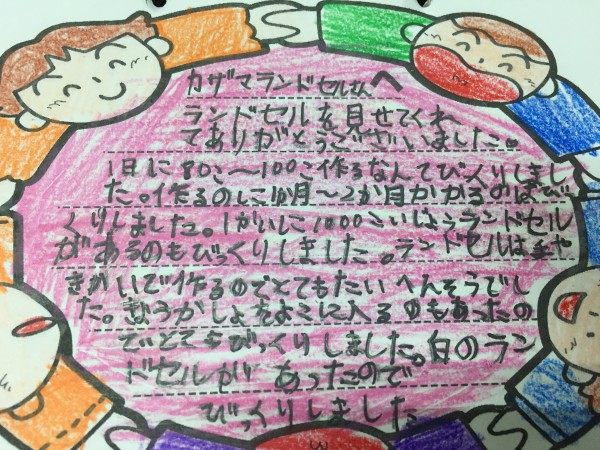 カザマランドセルさんへ
ランドセルを見せてくれ
てありがとうございました。
1日に80こ〜100こ作るなんてびっくりしまし
た。作るのに か月〜2か月かかるのはび
くりしました。1かいに1000こいじょうランドセル
があるのもびっくりしました。ランドセルは手や
きかいで作るのでとてもたいへんそうでし
た。 入るのもあったの
でとてもびっくりしました。白のラン
ドセルが あったので
びっくりしました